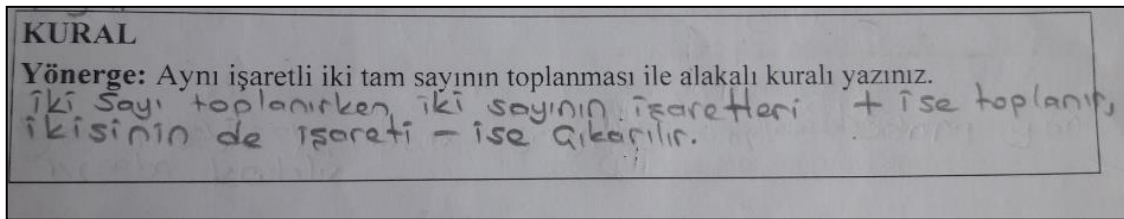 KURAL
Yönerge: Aynı işaretli iki tam sayının toplanması ile alakalı kuralı yazınız.
İki sayı toplanırken, iki sayının işaretleri + ise toplanır,
ikisinin de işareti - ise çıkarılır.